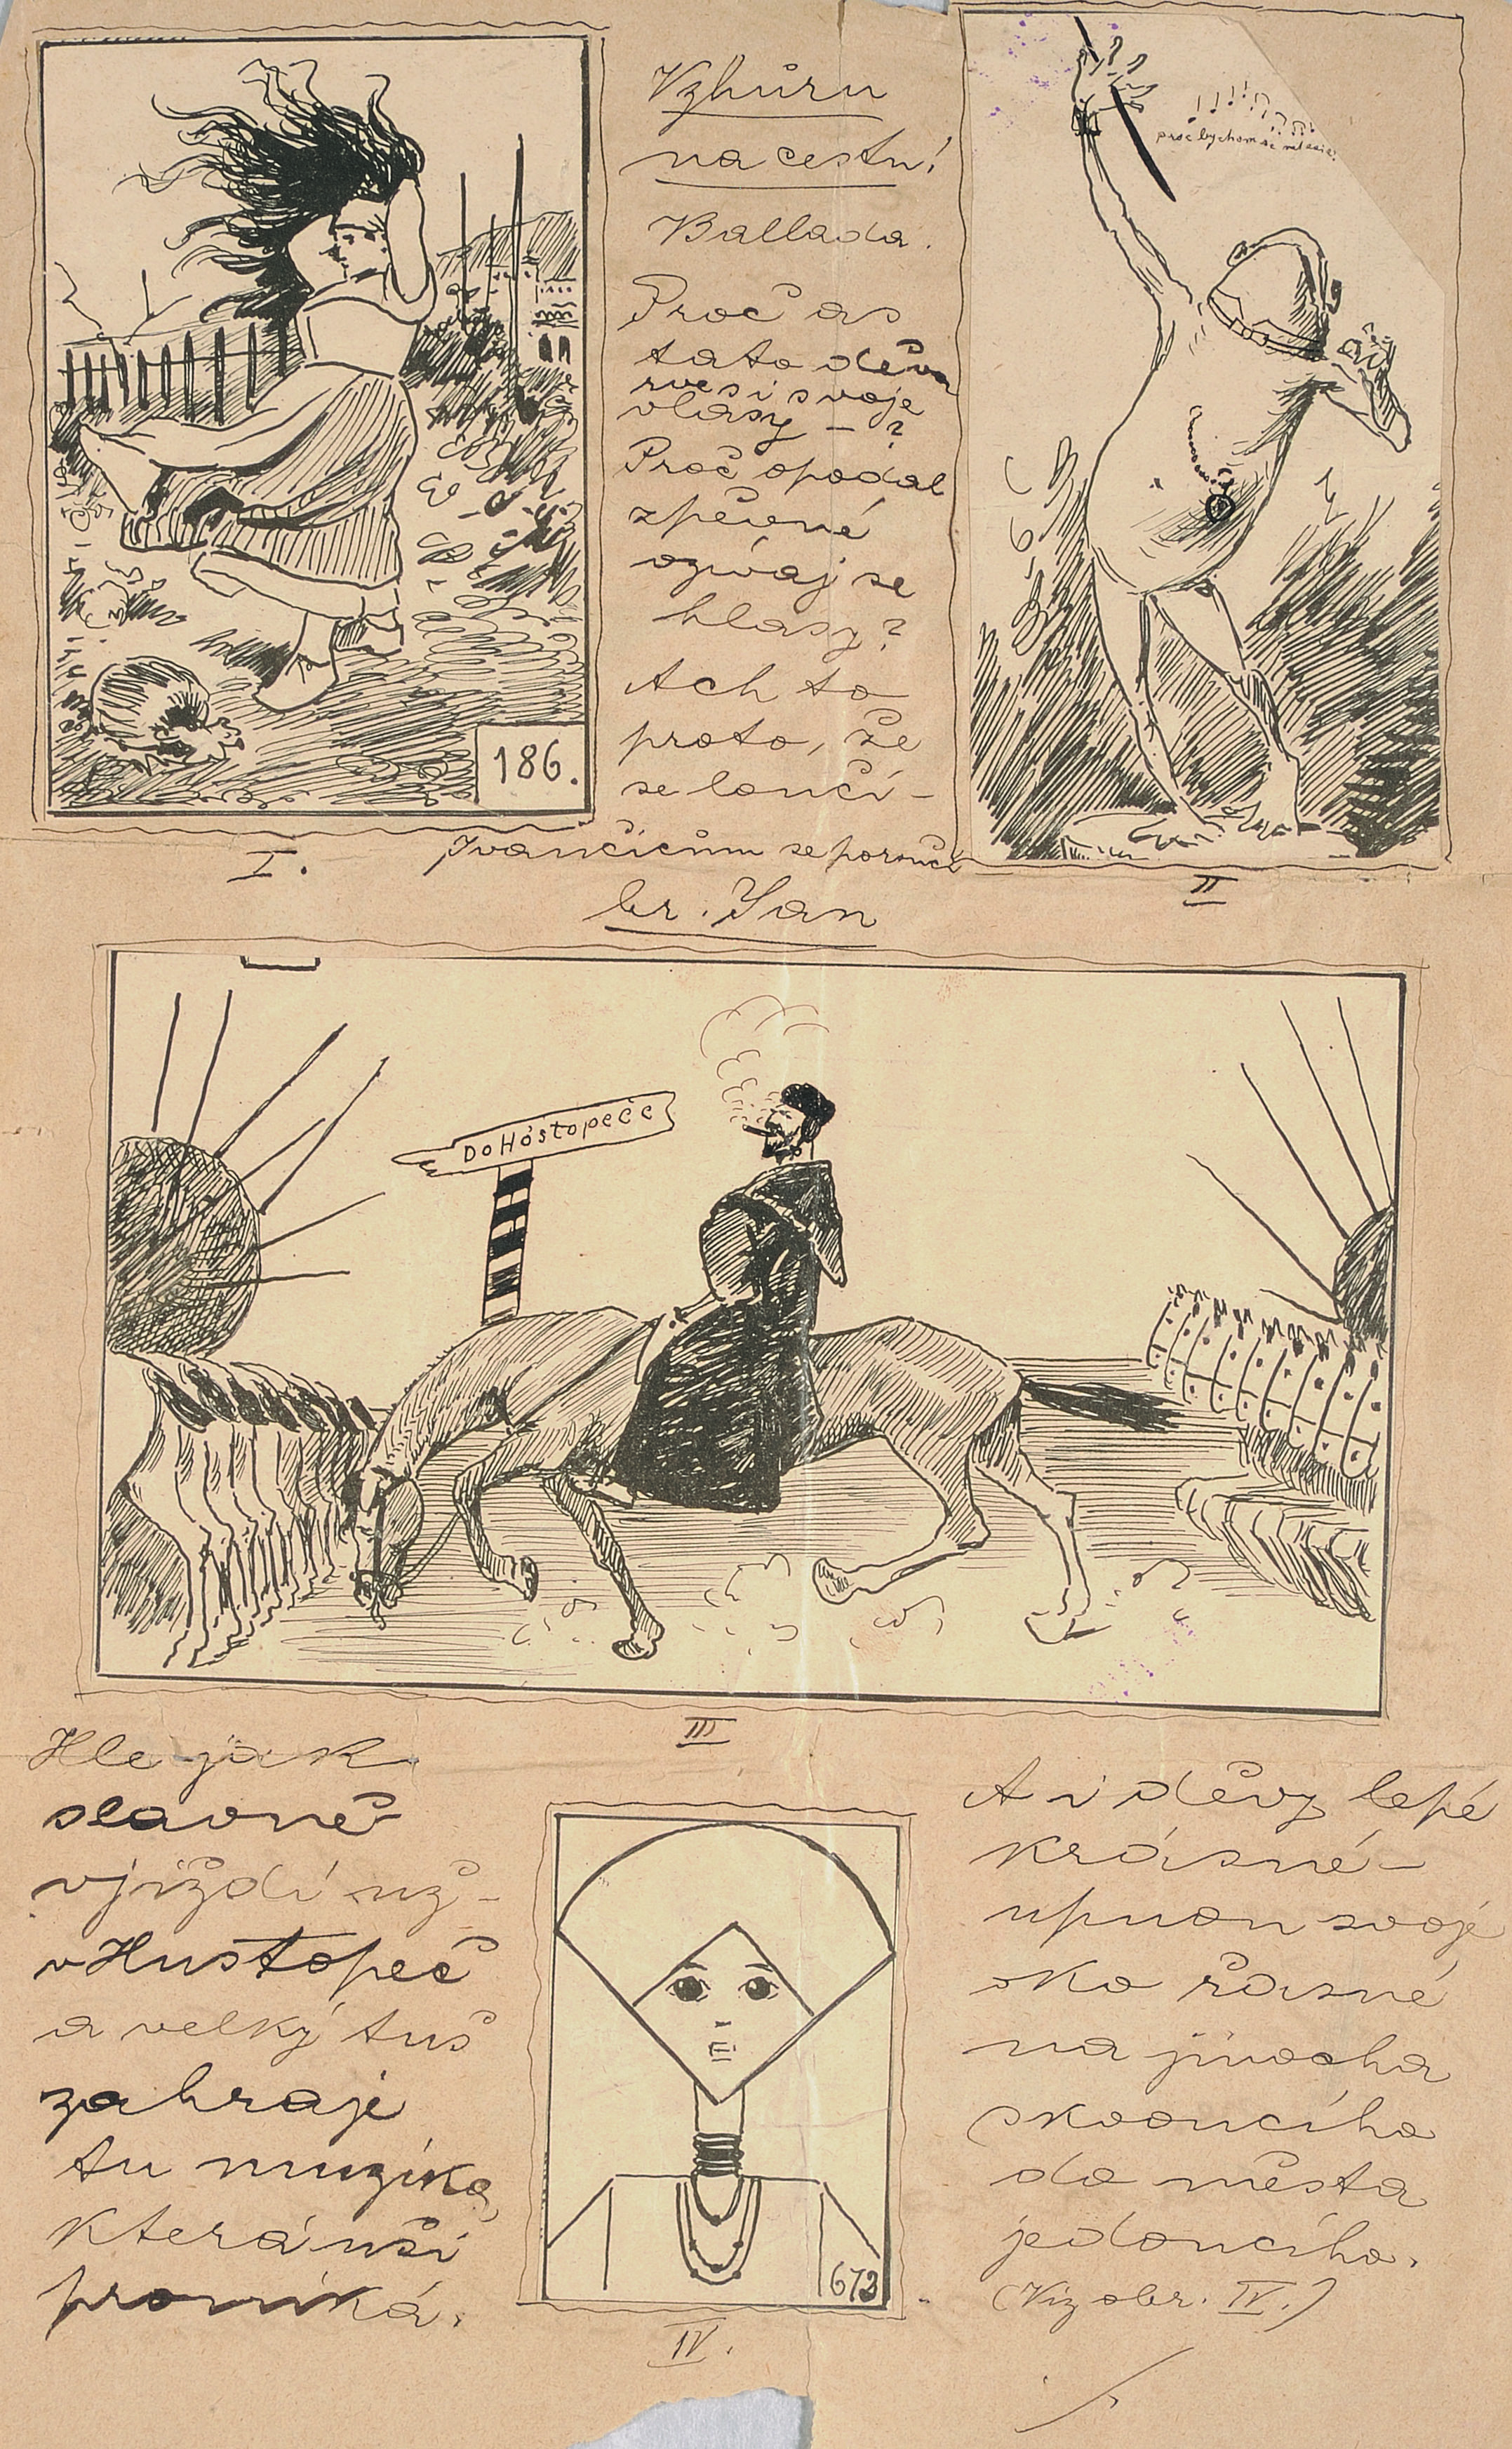 Vzhůru
na cestu!
Ballada.
Proč as
tato děva
rve si svoje
vlasy – ?
Proč opodál
zpěvné
ozívaj se
hlasy?
Ach to
proto, že
se loučí –
Ivančicům se poroučí
br. Jan
proč bychom se netěšili
186.
I.
II
Do Hóstopeče
III
Hle jak
slavně
vjíždí už –
v Hustopeč
a velký tuš
zahraje
tu muzika,
která uši
proniká.
673
IV.
A i děvy lepé
krásné –
upnou svoje
oko řasné
na jinocha
skvoucího
do města
jedoucího.
(Viz obr. IV.)